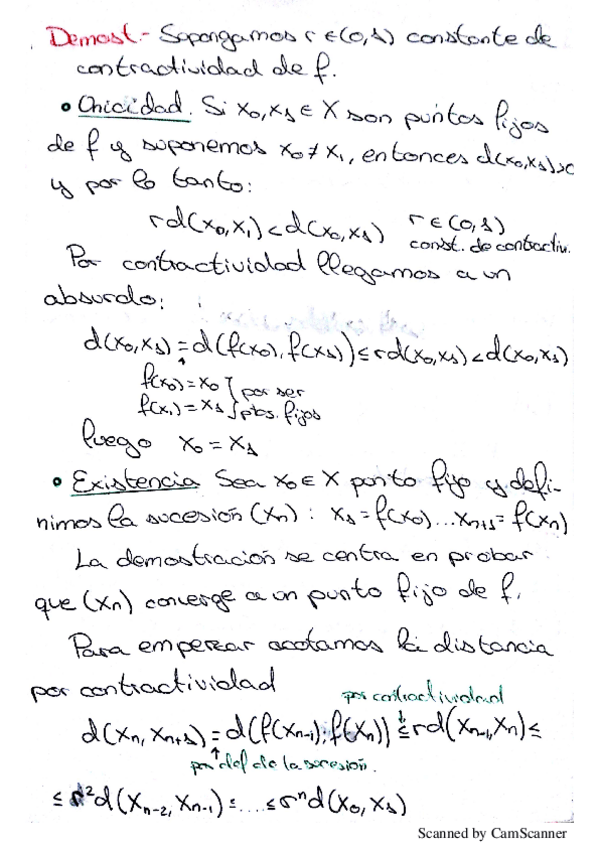 Demost.- Sopongamos r ∈ (0,1) constante de
contractividad de f.
• Unicidad. Si x₀, x₁ ∈ X son puntos fijos
de f y suponemos x₀ ≠ x₁, entonces d(x₀,x₁)>0
y por lo tanto:
rd(x₀,x₁) < d(x₀,x₁) r ∈ (0,1)
const. de contractiv.
Por contractividad llegamos a un
absurdo:
d(x₀,x₁) = d(f(x₀), f(x₁)) ≤ rd(x₀,x₁) < d(x₀,x₁)
f(x₀) = x₀ } por ser
f(x₁) = x₁ } ptos. fijos
luego x₀ = x₁
• Existencia Sea x₀ ∈ X punto fijo y defi-
nimos la sucesión (xₙ) : x₁ = f(x₀) ... xₙ₊₁ = f(xₙ)
La demostración se centra en probar
que (xₙ) converge a un punto fijo de f.
Para empezar acotamos la distancia
por contractividad
por contractividad
d(xₙ, xₙ₊₁) = d(f(xₙ₋₁), f(xₙ)) ≤ rd(xₙ₋₁, xₙ) ≤
por def de la sucesión.
≤ r²d(xₙ₋₂, xₙ₋₁) ≤ .... ≤ rⁿd(x₀, x₁)
Scanned by CamScanner